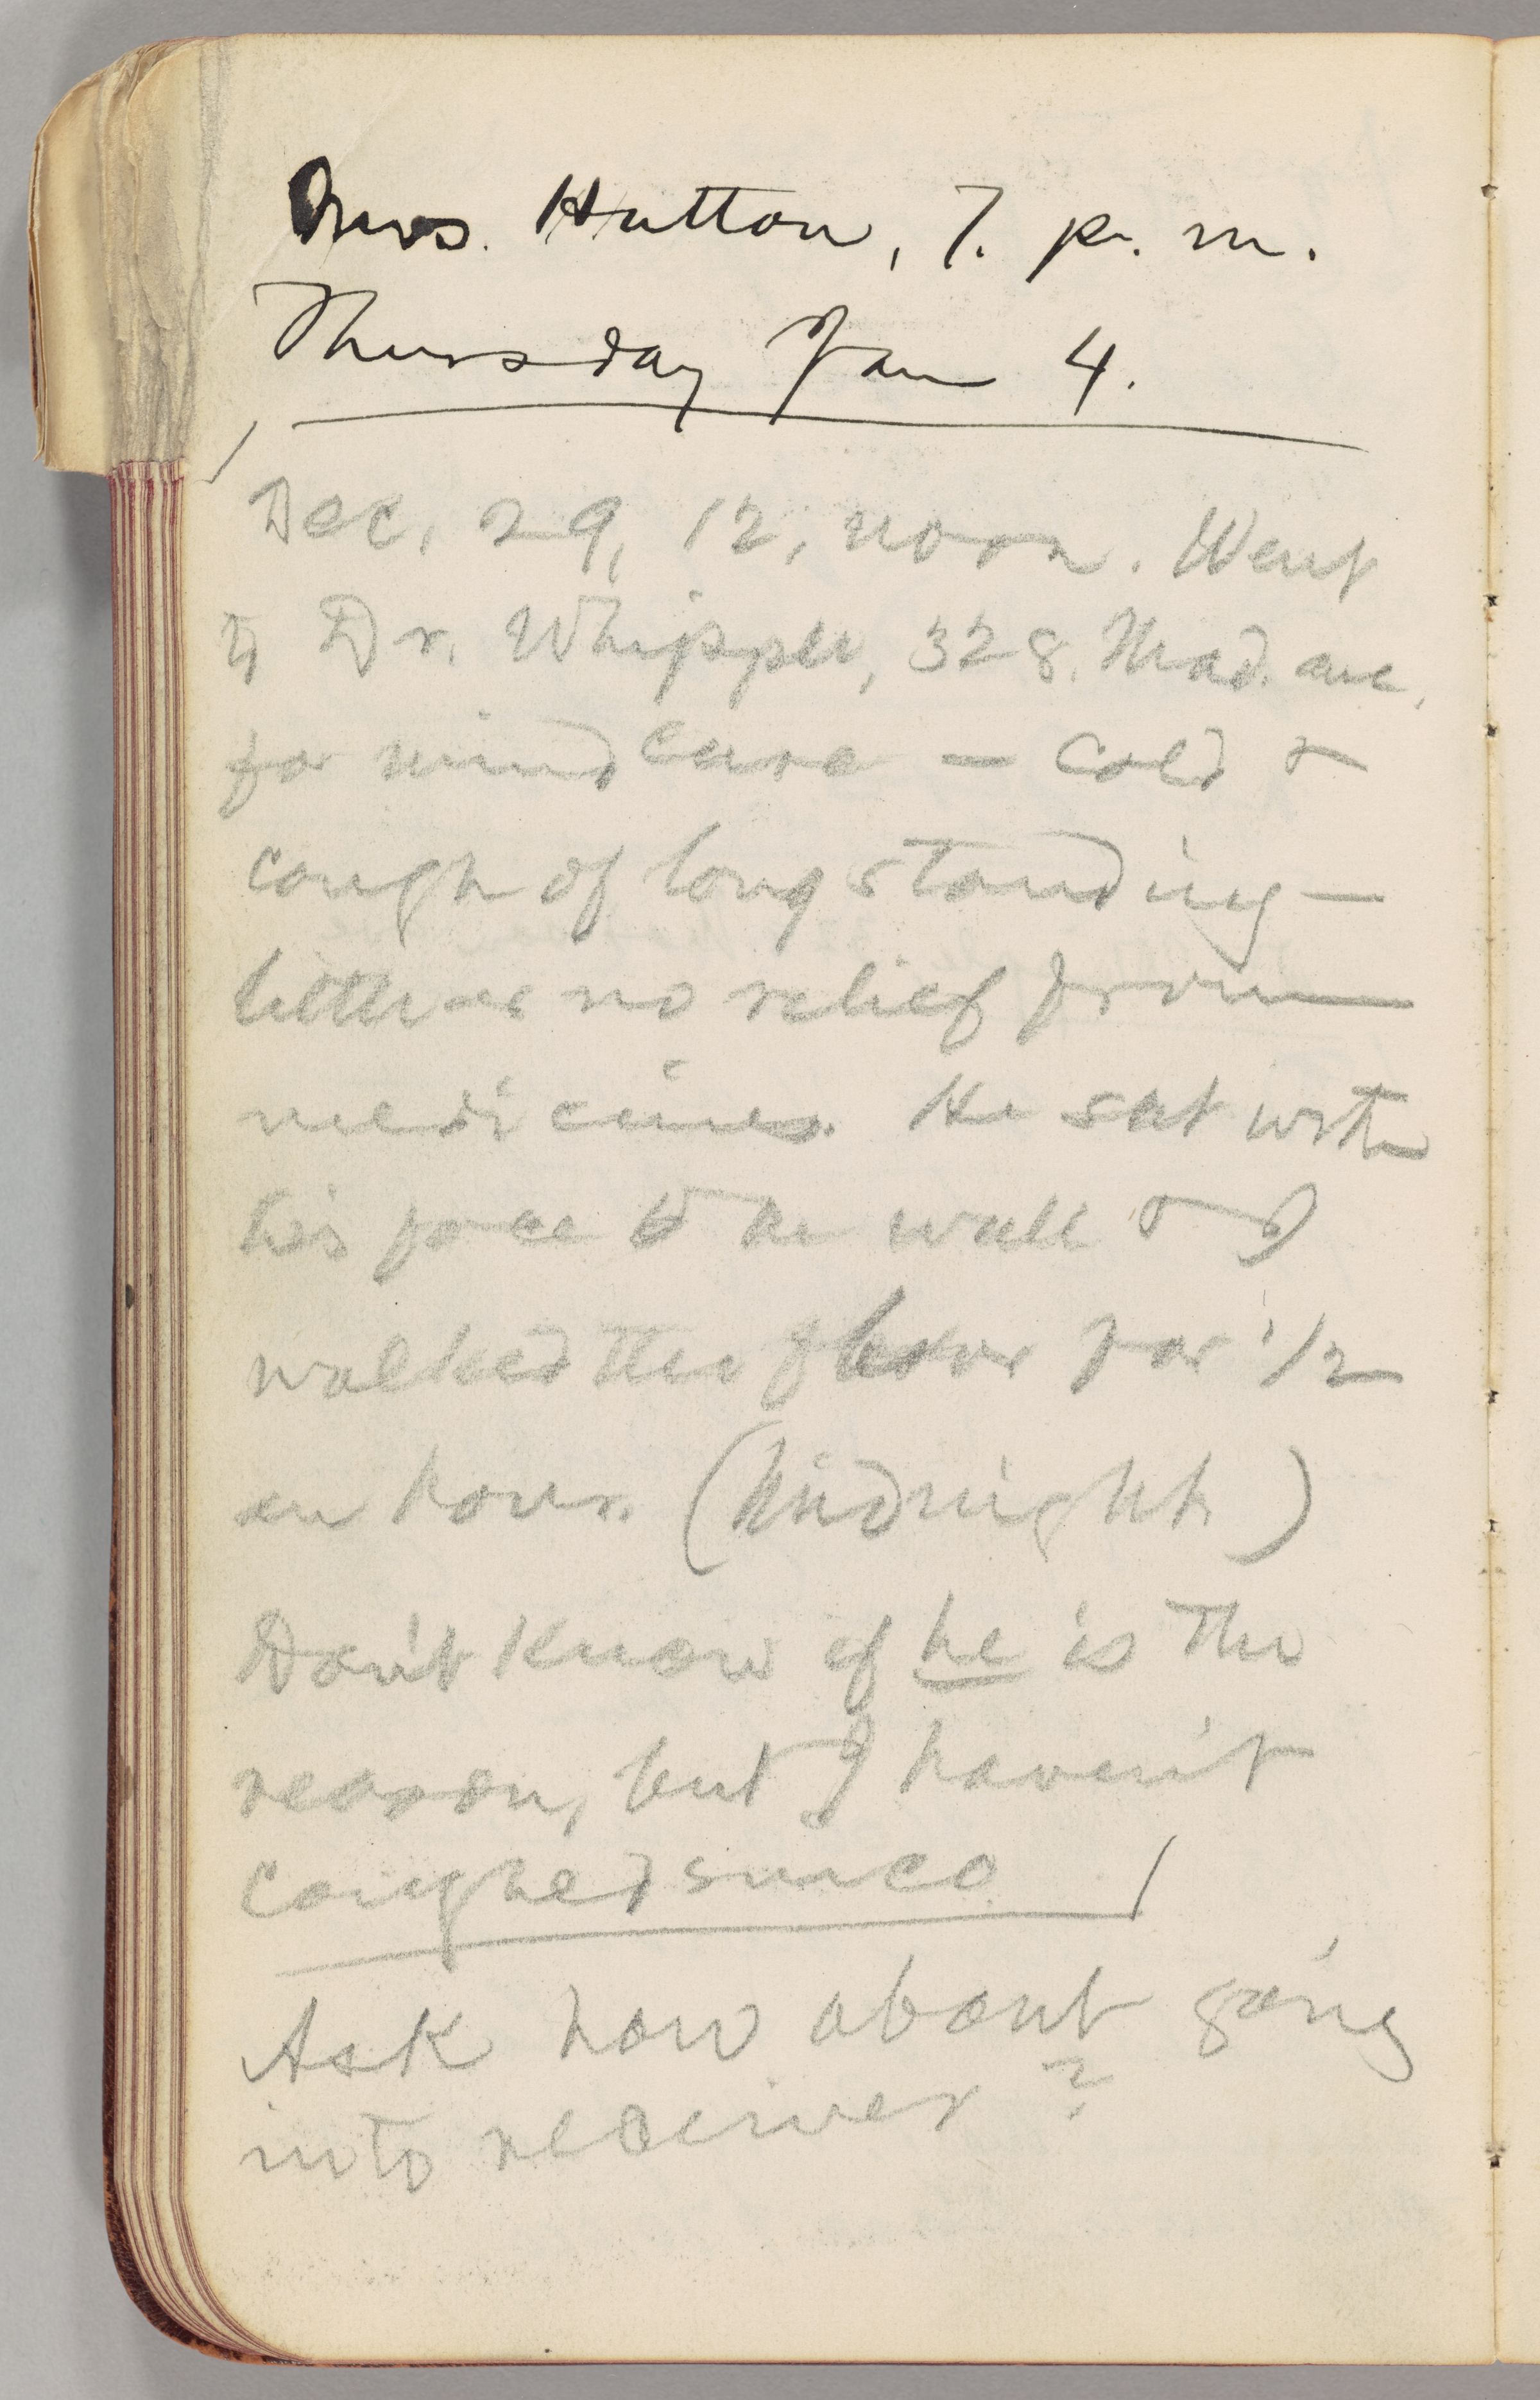 Mrs. Hutton, 7. p. m.
Thursday Jan 4.
Dec, 29, 12, noon. Went
to Dr. Whipple, 328. Mad. ave,
for mind cure — cold &
cough of long standing —
little or no relief from
medicines. He sat with
his face to the wall & I
walked the floor for 1/2
an hour. (Midnight.)
Don't know if he is the
reason, but I haven't
coughed since
Ask how about going
into receiver?